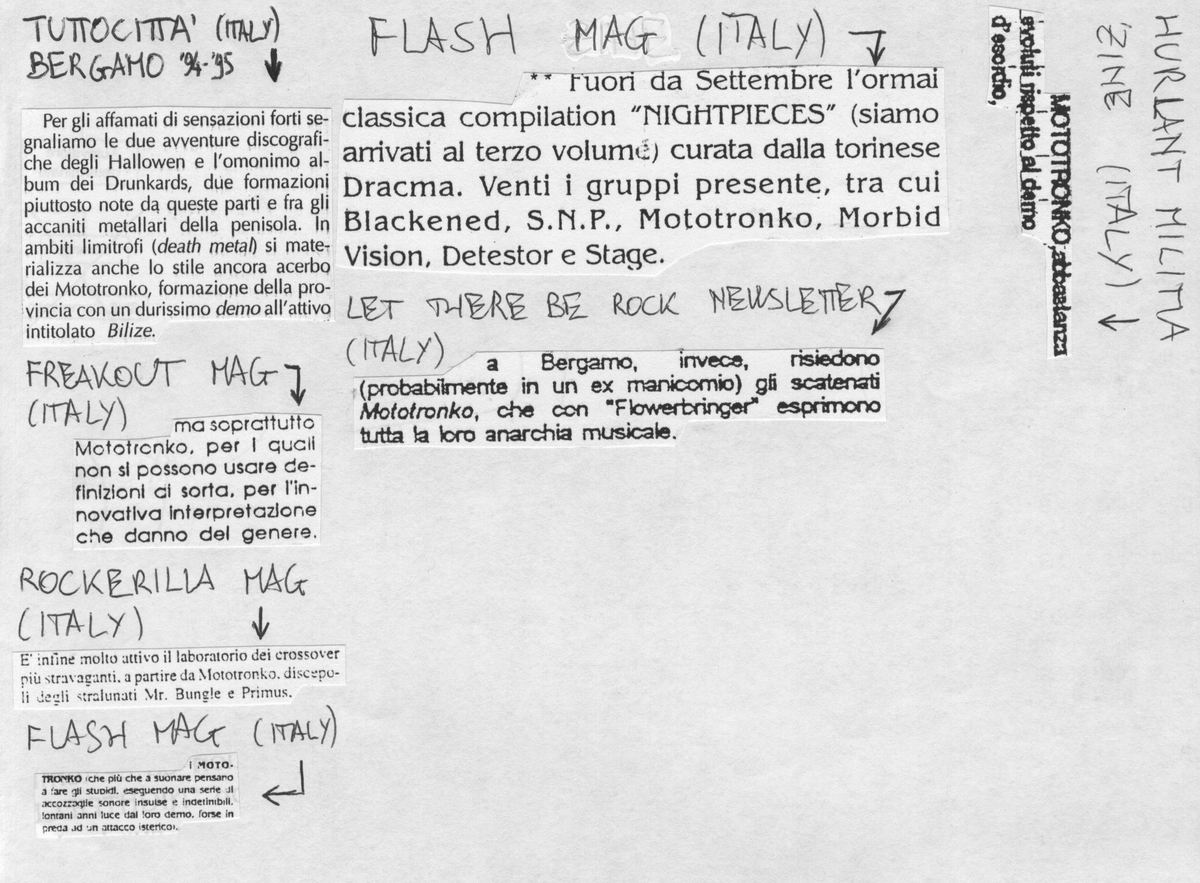 TUTTOCITTA' (ITALY)
BERGAMO '94-'95
Per gli affamati di sensazioni forti se-
gnaliamo le due avventure discografi-
che degli Hallowen e l'omonimo al-
bum dei Drunkards, due formazioni
piuttosto note da queste parti e fra gli
accaniti metallari della penisola. In
ambiti limitrofi (death metal) si mate-
rializza anche lo stile ancora acerbo
dei Mototronko, formazione della pro-
vincia con un durissimo demo all'attivo
intitolato Bilize.
FREAKOUT MAG
(ITALY)
ma soprattutto
Mototronko, per i quali
non si possono usare de-
finizioni di sorta, per l'in-
novativa interpretazione
che danno del genere.
ROCKERILLA MAG
(ITALY)
E' infine molto attivo il laboratorio dei crossover
più stravaganti, a partire da Mototronko, discepo-
li degli stralunati Mr. Bungle e Primus.
FLASH MAG (ITALY)
i MOTO-
TRONKO (che più che a suonare pensano
a fare gli stupidi, eseguendo una serie di
accozzaglie sonore insulse e indefinibili,
lontani anni luce dal loro demo, forse in
preda ad un attacco isterico),
FLASH MAG (ITALY)
** Fuori da Settembre l'ormai
classica compilation "NIGHTPIECES" (siamo
arrivati al terzo volume) curata dalla torinese
Dracma. Venti i gruppi presente, tra cui
Blackened, S.N.P., Mototronko, Morbid
Vision, Detestor e Stage.
LET THERE BE ROCK NEWSLETTER
(ITALY)
a Bergamo, invece, risiedono
(probabilmente in un ex manicomio) gli scatenati
Mototronko, che con "Flowerbringer" esprimono
tutta la loro anarchia musicale.
HURLANT MILITIA
'ZINE (ITALY)
MOTOTRONKO, abbastanza
evoluti rispetto al demo
d'esordio,